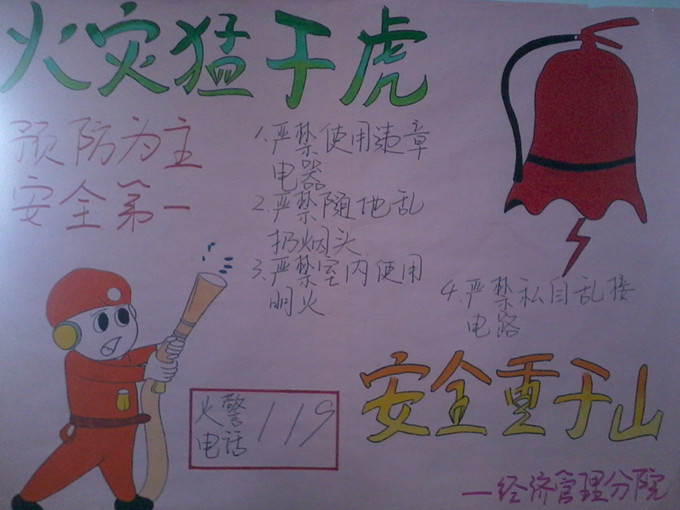 火灾猛于虎
预防为主
安全第一
1.严禁使用违章
电器
2.严禁随地乱
扔烟头
3.严禁室内使用
明火
4.严禁私自乱接
电路
火警
电话
119
安全重于山
—经济管理分院